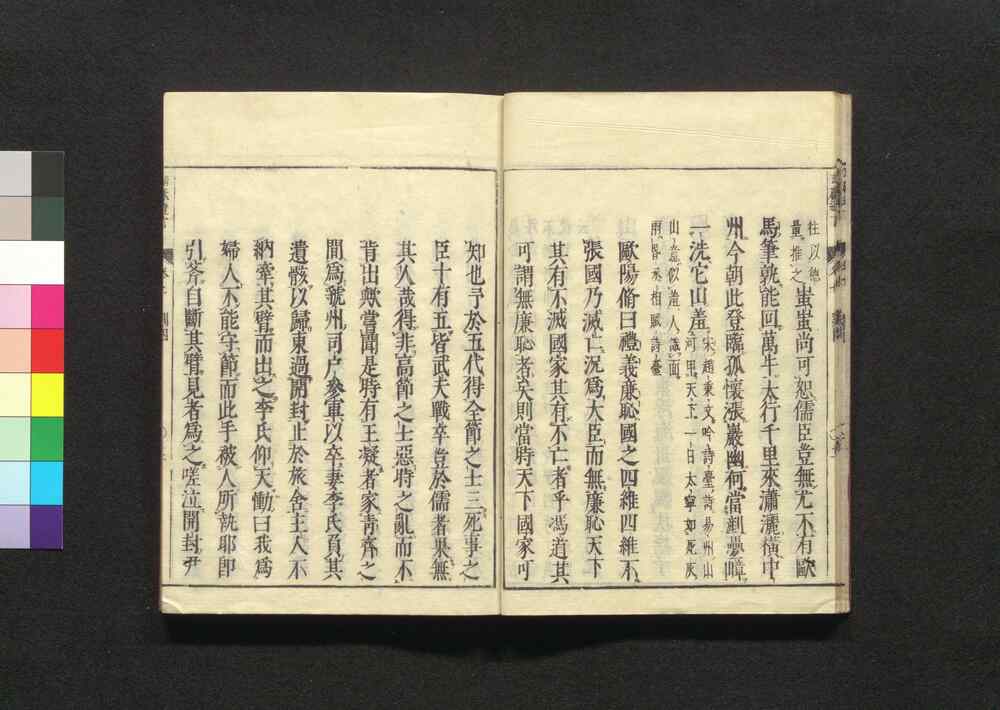 往以德
量推之蚩蚩尚可恕儒臣豈無尤不有歐
馬筆孰能回萬牛太行千里來瀟灑橫中
州今朝此登臨孤懷漲巖幽何當剗疊嶂
一洗它山羞宋趙秉文吟詩臺詩易州山
河甲天下一日太寧如死灰
山意似羞人識面
雨昏丞相賦詩臺
歐陽脩曰禮義廉恥國之四維四維不
張國乃滅亡況爲大臣而無廉恥天下
其有不滅國家其有不亡者乎馮道其
可謂無廉恥者矣則當時天下國家可
知也予於五代得全節之士三死事之
臣十有五皆武夫戰卒豈於儒者果無
其人哉得非高節之士惡時之亂而不
肯出歟嘗聞是時有王凝者家青齊之
間爲虢州司戶參軍以卒妻李氏負其
遺骸以歸東過開封止於旅舍主人不
納牽其臂而出之李氏仰天慟曰我爲
婦人不能守節而此手被人所執耶卽
引斧自斷其臂見者爲之嗟泣開封尹